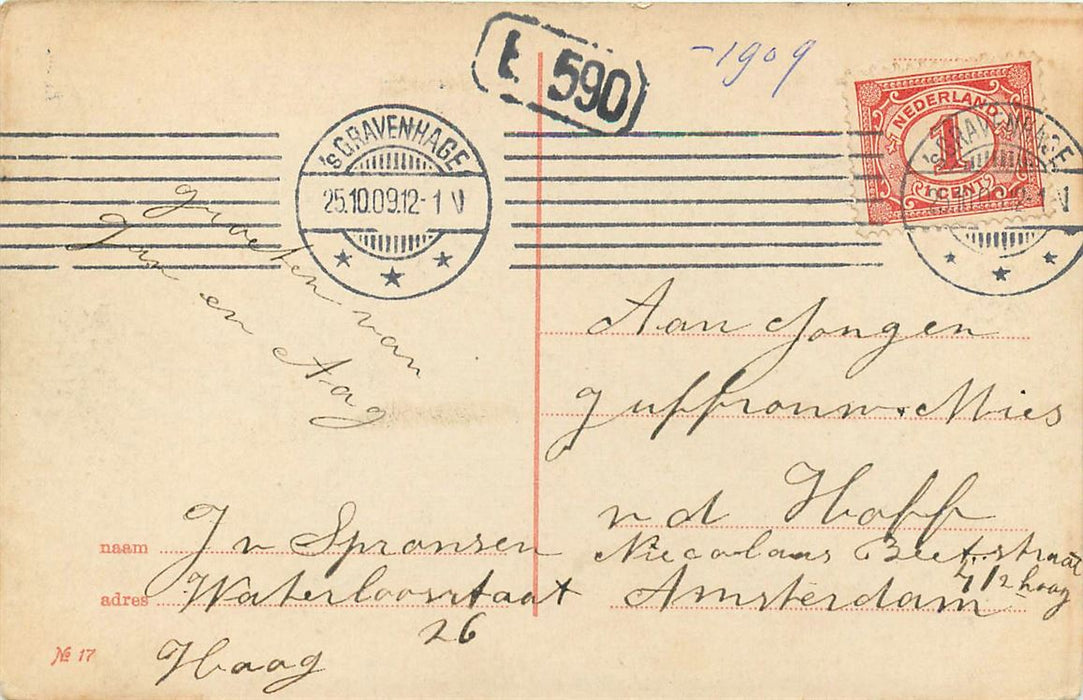 E 590
-1909
's GRAVENHAGE
25.10.09.12-1 V
NEDERLAND
1
1 CENT
's GRAVENHAGE
groeten van
Jan en Aag
Aan Jongen
Juffrouw. Mies
v d Hoff
Niecolaas Beetsstraat
4 1/2 hoog
Amsterdam
naam J v Spronsen
adres Waterloostaat
26
Haag
№ 17